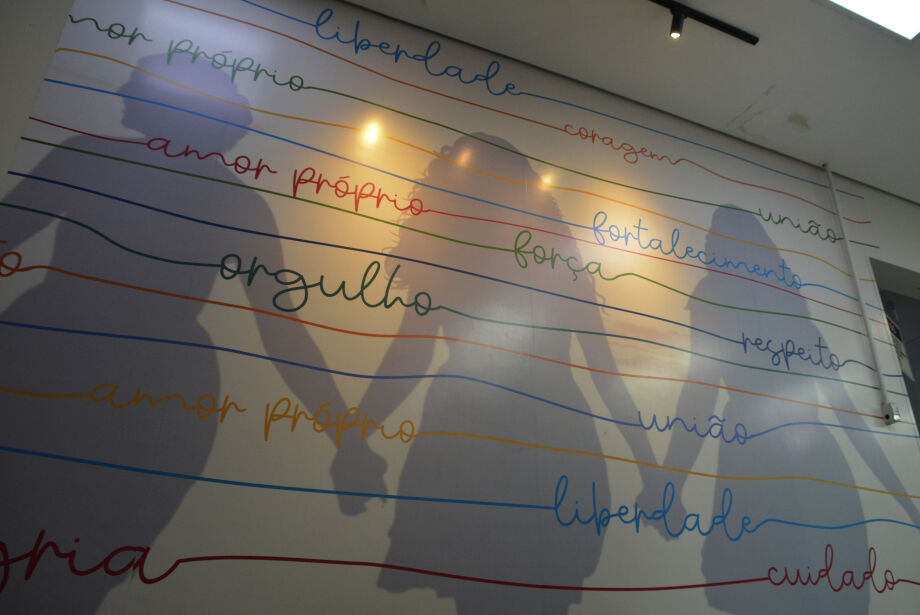 liberdade
mor próprio
coragem
amor próprio
união
fortalecimento
força
orgulho
respeito
amor próprio
união
liberdade
gria
cuidado